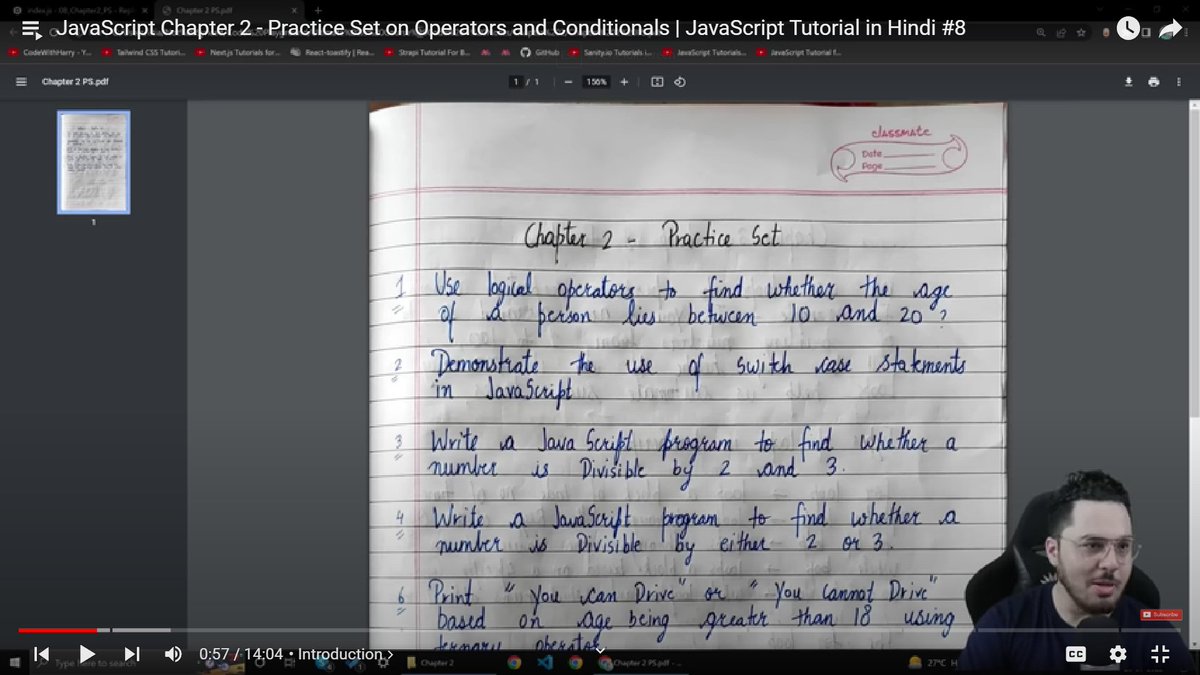 JavaScript Chapter 2 - Practice Set on Operators and Conditionals | JavaScript Tutorial in Hindi #8
Chapter 2 PS.pdf
CodeWithHarry - Y...
Tailwind CSS Tutori...
Next.js Tutorials for...
React-toastify | Rea...
Strapi Tutorial For B...
GitHub
Sanity.io Tutorials i...
JavaScript Tutorials...
JavaScript Tutorial f...
Chapter 2 PS.pdf
1 / 1
156%
1
classmate
Date
Page
Chapter 2 - Practice Set
1 Use logical operators to find whether the age
of a person lies between 10 and 20?
2 Demonstrate the use of switch case statements
in JavaScript
3 Write a Java Script program to find whether a
number is Divisible by 2 and 3.
4 Write a JavaScript program to find whether a
number is Divisible by either 2 or 3.
6 Print "You can Drive" or "You Cannot Drive"
based on age being greater than 18 using
ternary operator
Subscribe
0:57 / 14:04 • Introduction
CC
Type here to search
Chapter 2
Chapter 2 PS.pdf - ...
27°C H